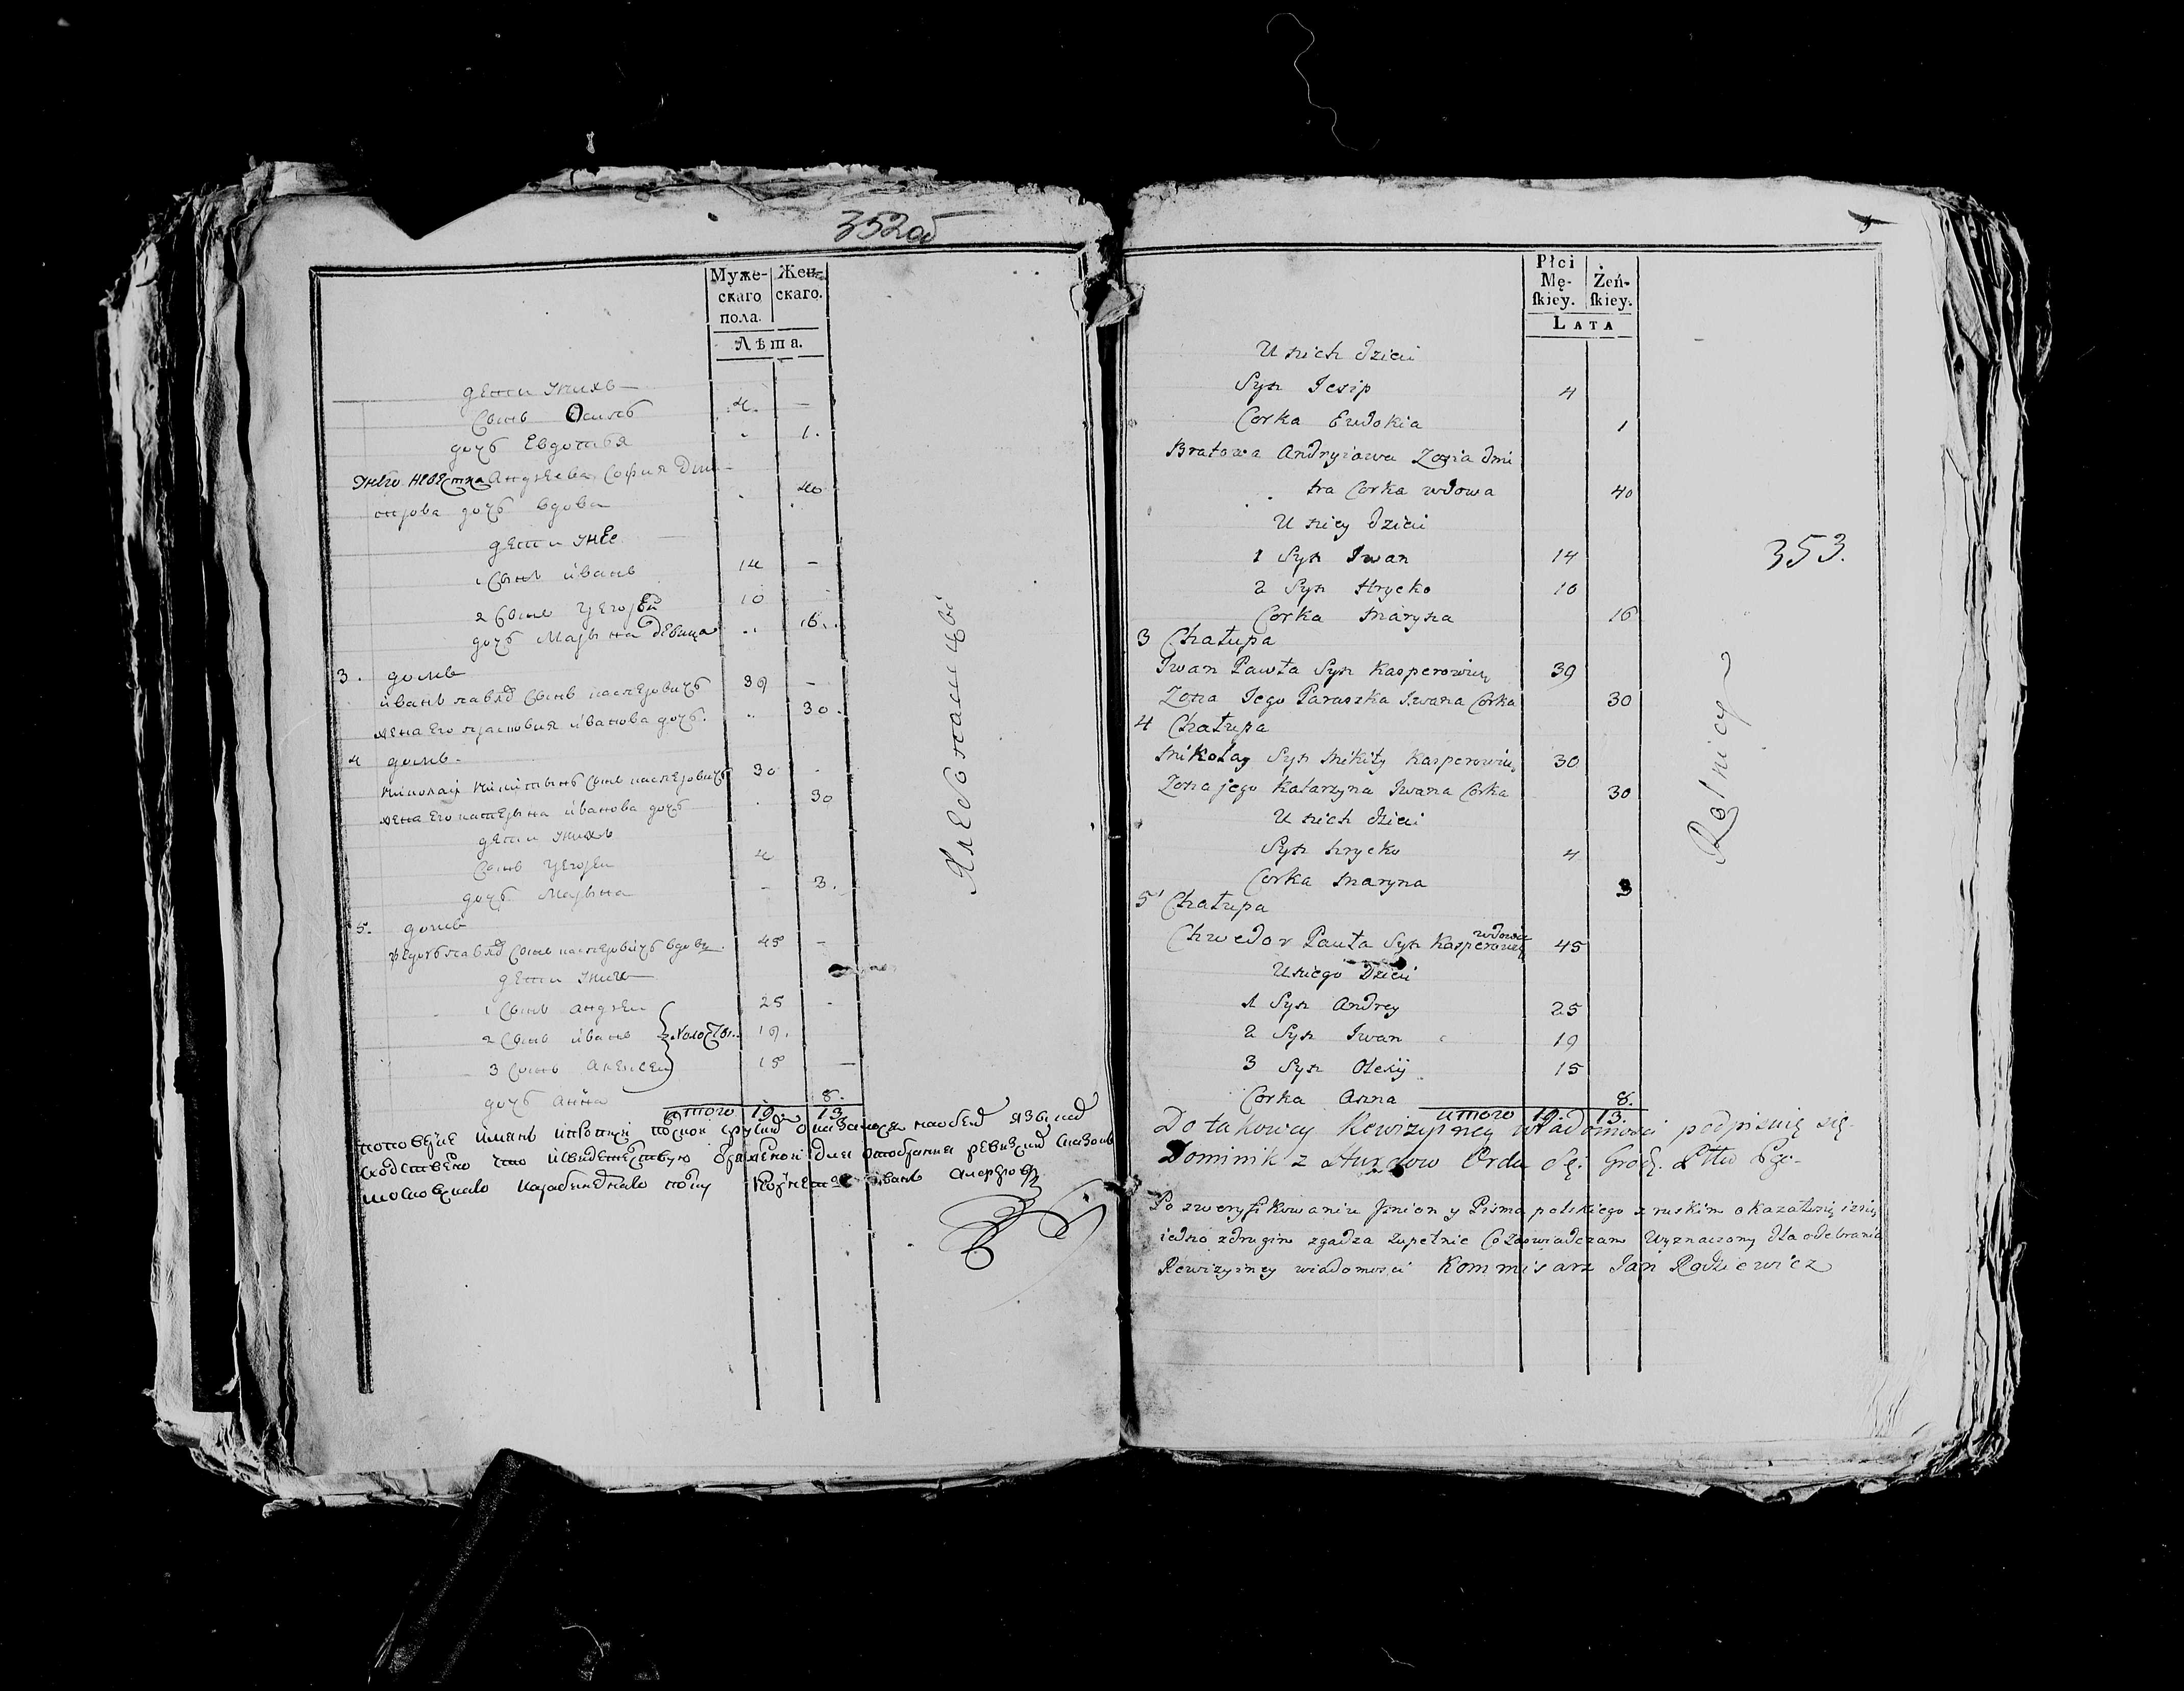 352об
Муже-
скаго
пола.
Жен-
скаго.
Лѣта.
дети у них
Сынъ Осипъ 4. —
дочь Евдотья 1.
у него невестка Андреева София Дми-
трова дочь вдова 40
дети у нее
1 Сынъ иванъ 14 —
2 Сынъ григорей 10
дочь Марына девица 16.
3. домъ
иванъ павла Сынъ касперовичь 39 —
жена его прасковия иванова дочь. 30.
4 домъ.
николай никитынъ Сынъ касперовичь 30 -
жена его катерына иванова дочь 30
дети у нихъ
Сынъ григореи 4
дочь Марына 3.
5. домъ
федоръ павла Сынъ касперовичь вдовец 45 —
дети у них
1 Сынъ андреи 25 -
2 Сынъ иванъ холосты.. 19.
3 Сынъ алексеи 15 —
дочь анна 8.
итого 19. 13
Хлебопашцы
Płci
Mę-
skiey.
Żeń-
skiey.
LATA
U nich dzieci
Syn Jesip 4
Corka Ewdokia 1
Bratowa Andryiowa Zofia Dmi
tra Corka wdowa 40
U niey dzieci
1 Syn Iwan 14
2 Syn Hrycko 10
Corka Maryna 16
3 Chałupa
Iwan Pawła Syn Kasperowicz 39
Zona Jego Paraszka Iwana Corka 30
4 Chałupa
Mikołay Syn Mikity Kasperowicz 30
Zona jego Katarzyna Iwana Corka 30
U nich dzieci
Syn Hrycko 4
Corka Maryna 3
5 Chałupa
Chwedor Pawła Syn Kasperowicz wdowiec 45
U niego Dzieci
1 Syn Andrey 25
2 Syn Iwan 19
3 Syn Olexij 15
Corka Anna 8.
итого 19. 13.
Rolnicy
353.
Do takowey Rewizyiney wiadomosci podpisuię się
Dominik z Orda Sę: Grodz. Pttu
Po zweryfikowaniu Jmion y Pisma polskiego z ruskim okazało się iz
iedno z drugim zgadza zupełnie Co zaswiadczam Wyznaczony dla odebrania
Rewizyiney wiadomosci Kommisarz Jan Radziewicz